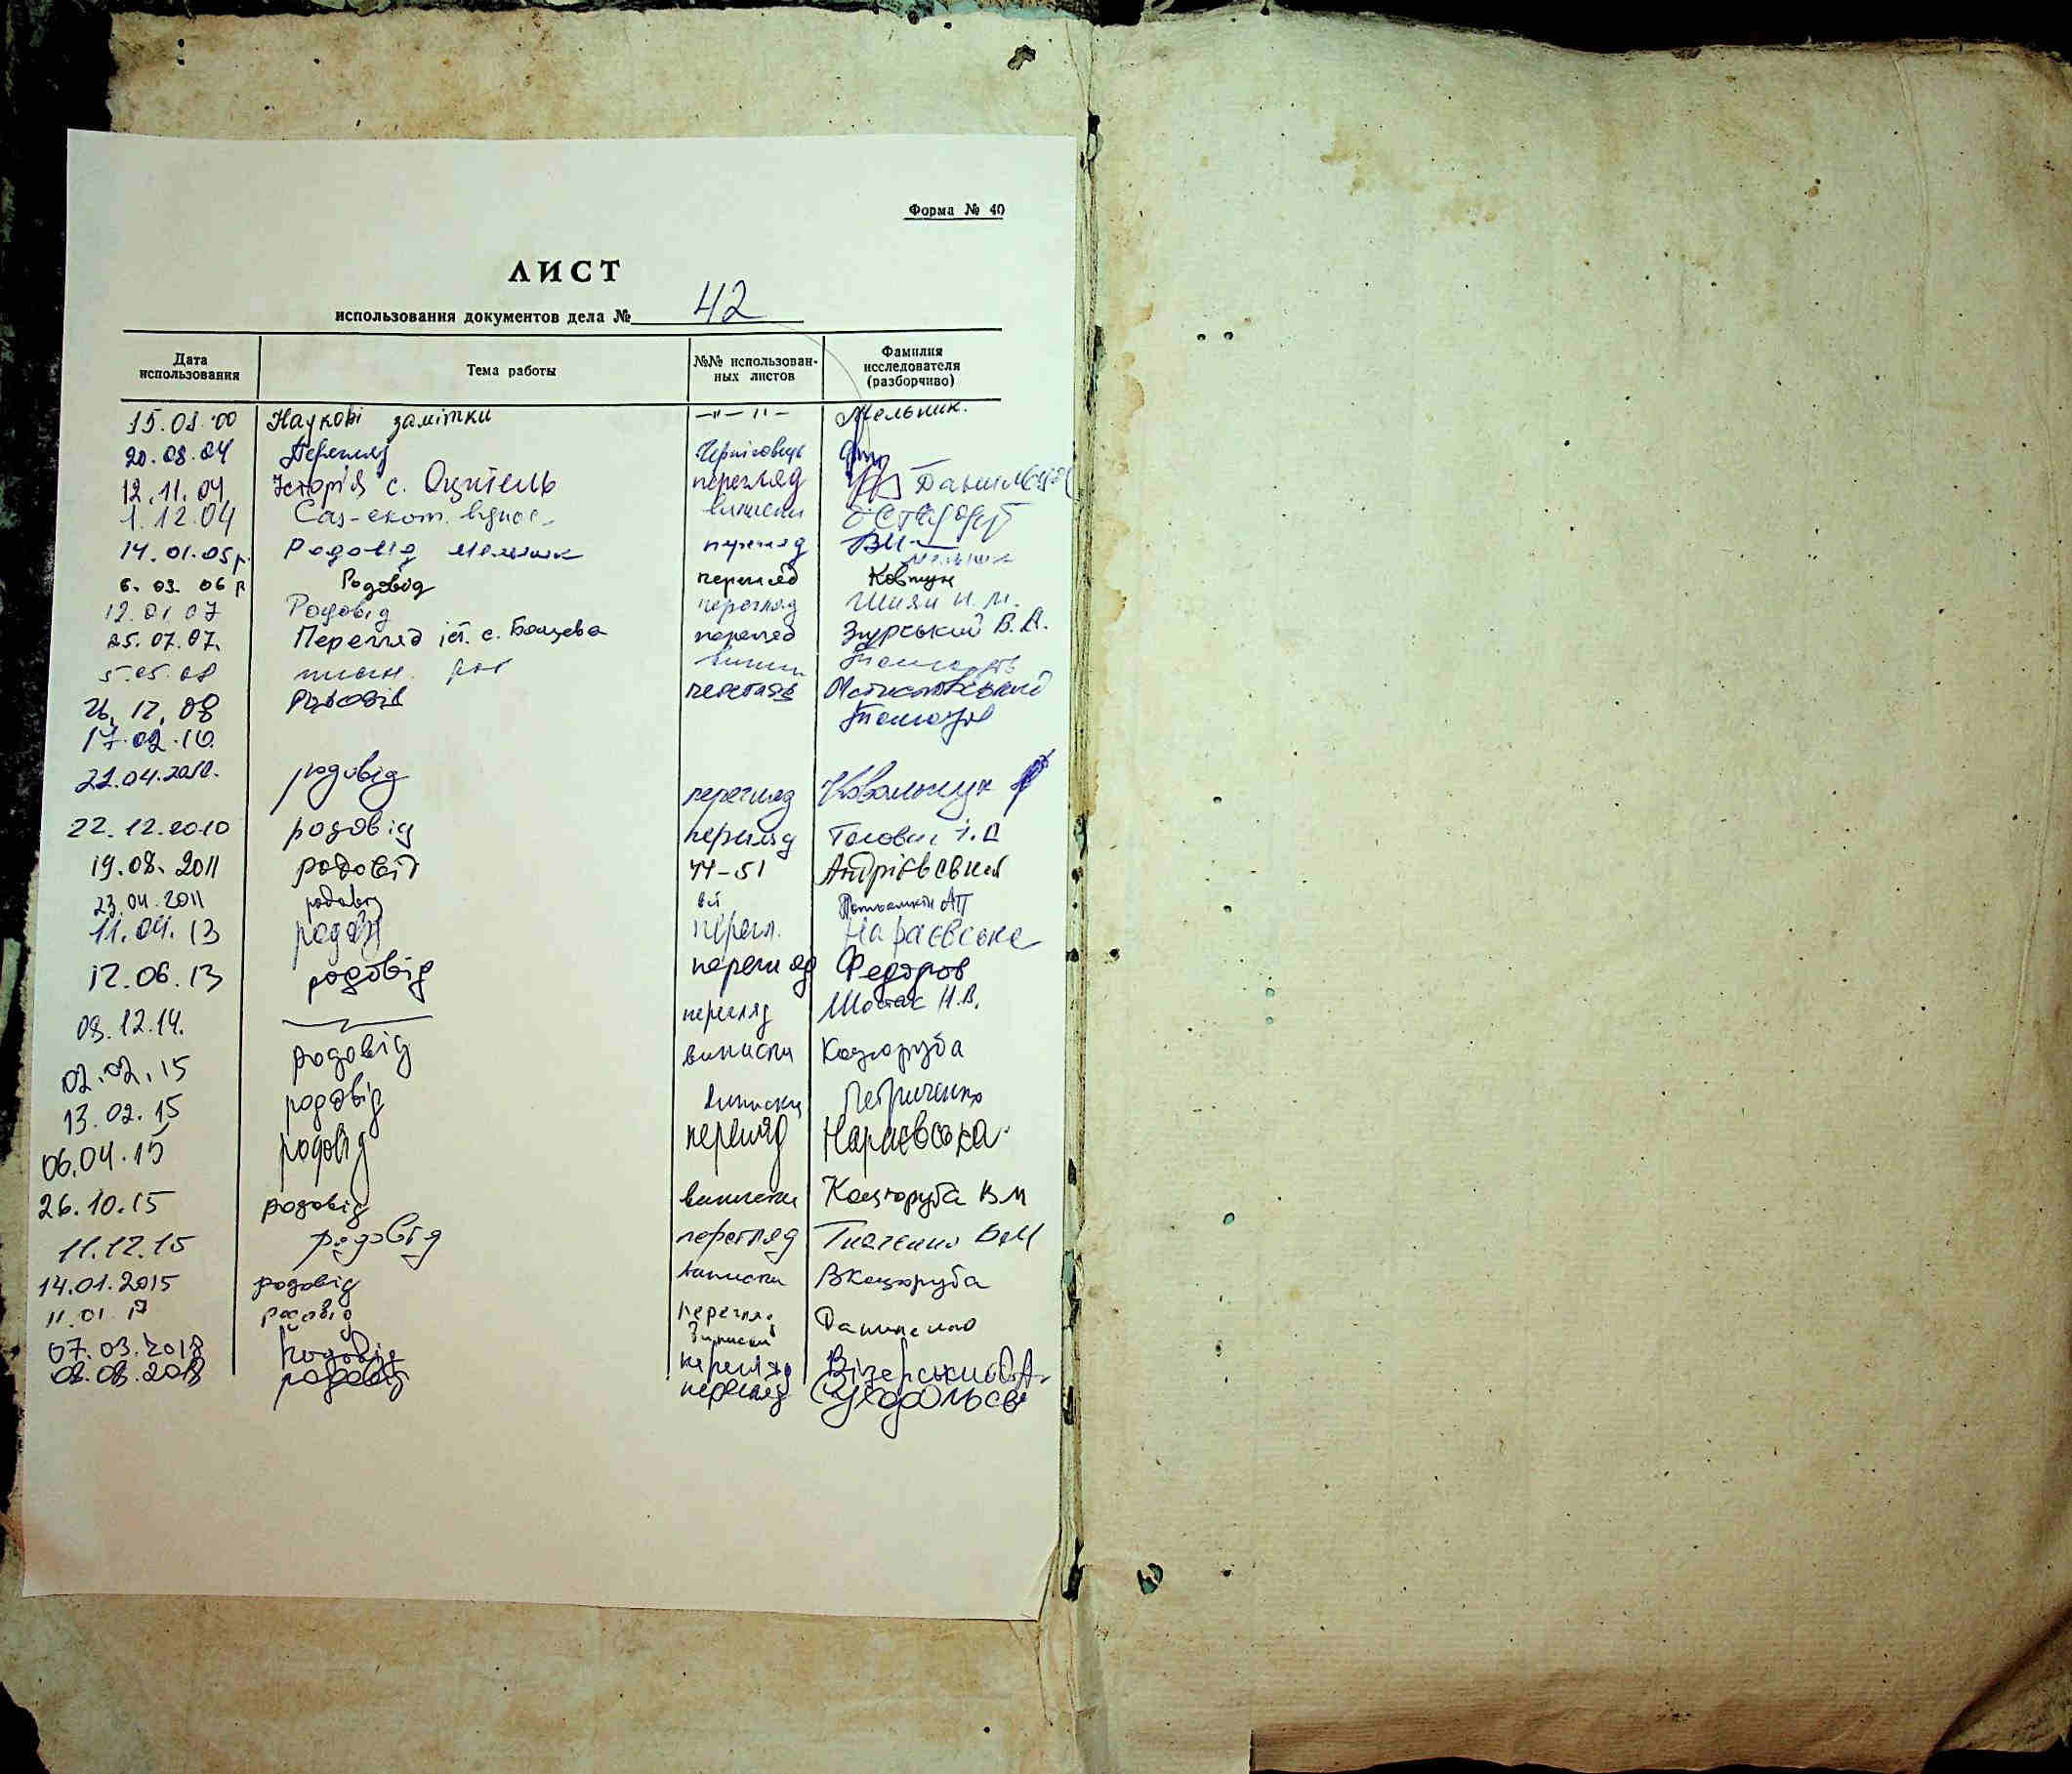 Форма № 40
ЛИСТ
использования документов дела № 42
Дата использования Тема работы №№ использован-ных листов Фамилия исследователя (разборчиво)
15.01.00 Наукові замітки —"—"— Мельник.
20.08.04 Перегляд
12.11.04 Історія с. Оцитель перегляд
1.12.04 виписки
14.01.05р. Родовід перегляд
6.03.06р Родовід перегляд Ковтун
12.01.07 Родовід перегляд Шиян Н.М.
25.07.07. Перегляд іст. с. перегляд Згурський В.А.
5.05.08
26.12.08 Родовід перегляд
17.02.10.
21.04.2010. родовід перегляд Ковальчук
22.12.2010 родовід перегляд
19.08.2011 родовід 44-51 Андрієвський
23.04.2011 родовід всі
11.04.13 родовід перегл. Нараєвська
12.06.13 родовід перегляд Федоров
08.12.14. перегляд Шостак Н.В.
02.02.15 родовід виписки Коцюруба
13.02.15 родовід виписки Петриченко
06.04.15 родовід перегляд Нараєвська
26.10.15 родовід виписки Коцюруба ВМ
11.12.15 родовід перегляд
14.01.2015 родовід виписки В Коцюруба
11.01.17 родовід перегляд виписки Даниленко
07.03.2018 Родовід перегляд
08.08.2018 родовід перегляд